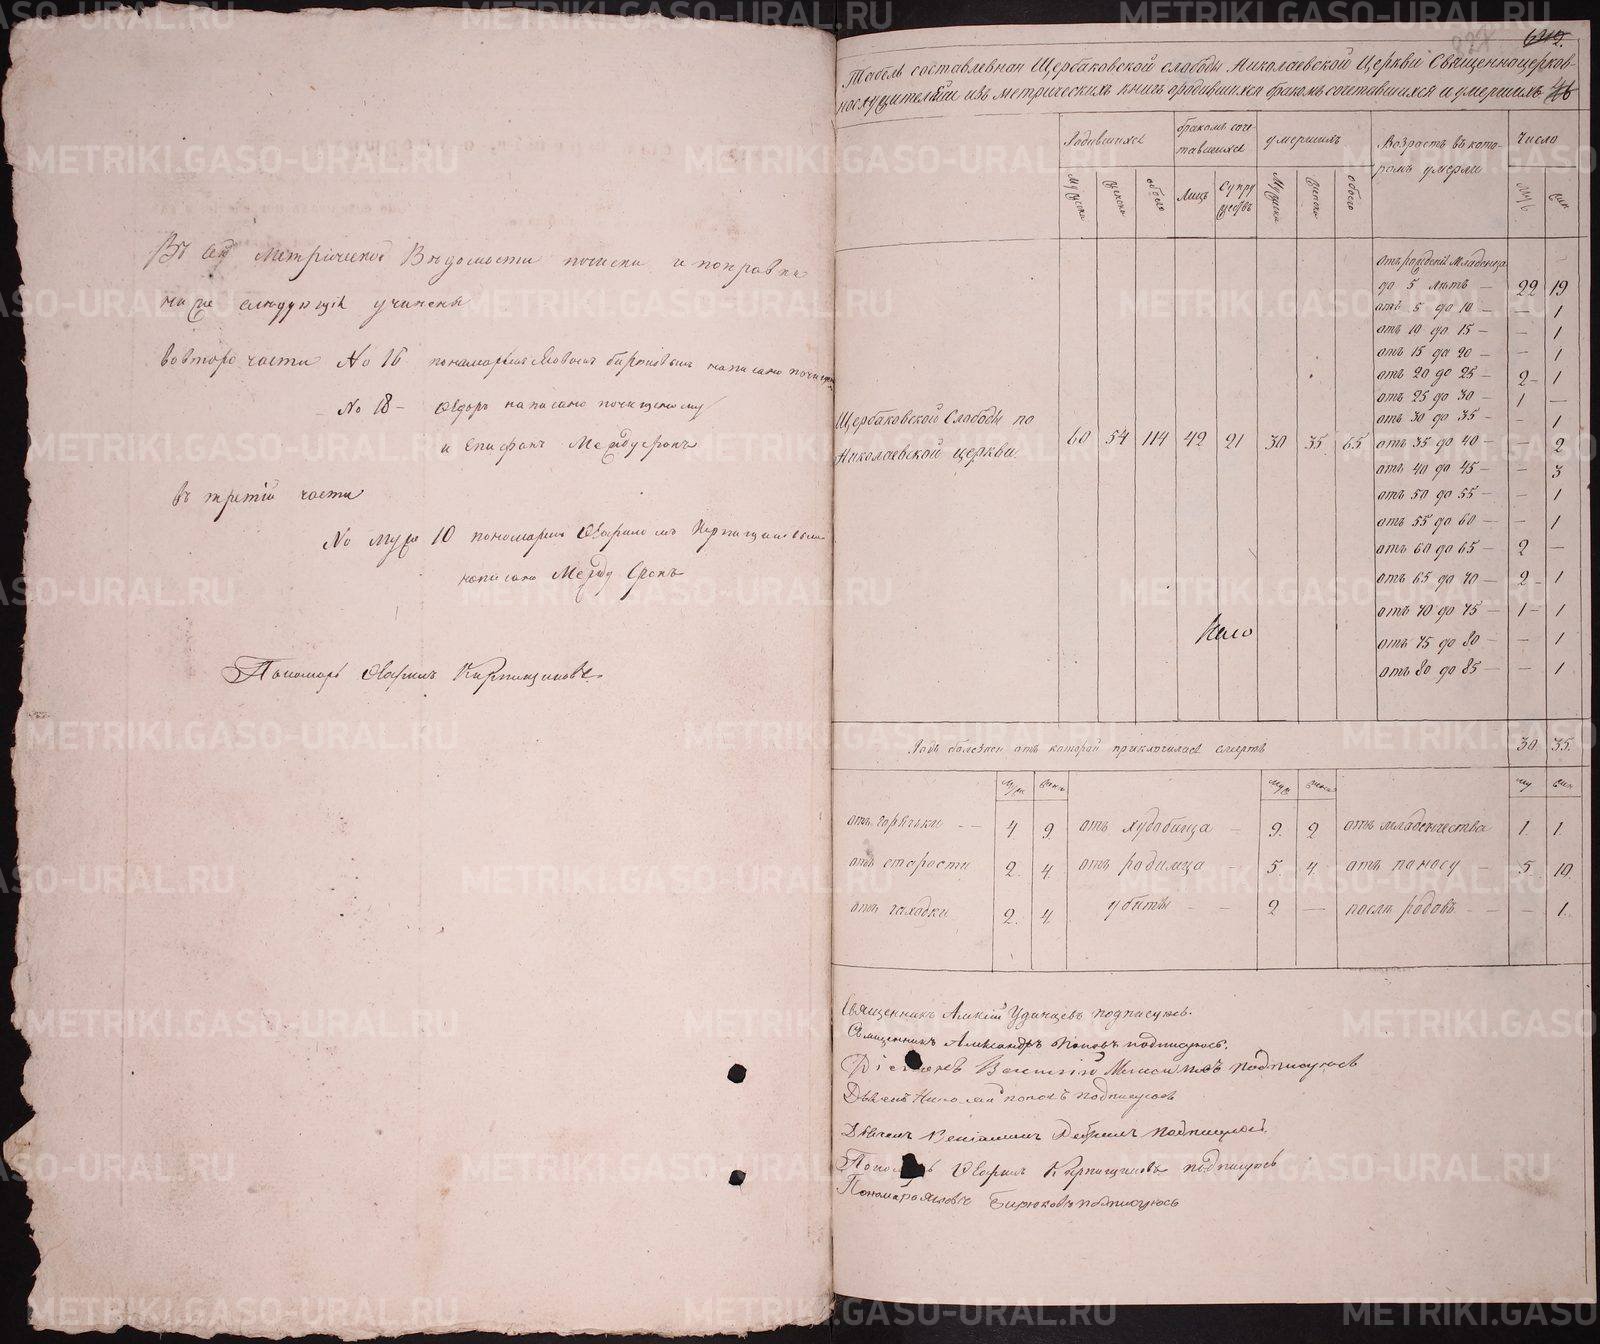 Въ сей Метрической Вѣдомости почиски и поправки
ниже слѣдующія учинены
во второй части No 16 пономаремъ Яковомъ Бирюковымъ написано почищеному
No 18 – Ѳедоръ написано почищеному
и Епифанъ Между строкъ
въ третій части
No муж 10 пономаремъ Кирпищиковымъ
написано Между Строкъ
Пономарь Кирпищиковъ
642.
Табель составленная Щербаковской слободы Николаевской Церкви Священноцерков-
нослужителями изъ метрическихъ книгъ о родившихся бракомъ сочетавшихся и умершихъ
Родившихся
бракомъ соче-
тавшихся
умершихъ
Возрастъ въ кото-
ромъ умерли
Число
Мужска
женска
обоего
Лицъ
Супру
жествъ
Мужска
женска
обоего
муж
жен
отъ рожденія Младенца
до 5 лѣтъ – 22 19
отъ 5 до 10 – – 1
отъ 10 до 15 – – 1
отъ 15 до 20 – – 1
отъ 20 до 25 – 2 – 1
отъ 25 до 30 – 1 –
отъ 30 до 35 – – 1
Щербаковской Слободы по
Николаевской церкви 60 54 114 42 21 30 35. 65
отъ 35 до 40 – – 2
отъ 40 до 45 – – 3
отъ 50 до 55 – – 1
отъ 55 до 60 – – 1
отъ 60 до 65 – 2 –
отъ 65 до 70 – 2 – 1
отъ 70 до 75 – 1 – 1
отъ 75 до 80 – – 1
отъ 80 до 85 – – 1
Родъ болезнен отъ которой приключилась смерть 30. 35.
муж жен муж жен му жен
отъ горячьки – – 4 9 отъ худобища – 9. 2 отъ младенчества 1. 1.
отъ старости 2. 4. отъ родимца – 5. 4. отъ поносу – 5. 10.
отъ чаходки 2. 4. убиты – – 2 – послѣ родовъ – – – 1.
Священникъ Алексій Удинцевъ подписуюсь.
Священникъ Александръ Поповъ подписуюсь.
подписуюсь
Дьячекъ Николай Поповъ подписуюсь
Дьячекъ Веніаминъ подписуюсь.
Кирпищиковъ подписуюсь
Пономарь Яковъ Бирюковъ подписуюсь
METRIKI.GASO-URAL.RU